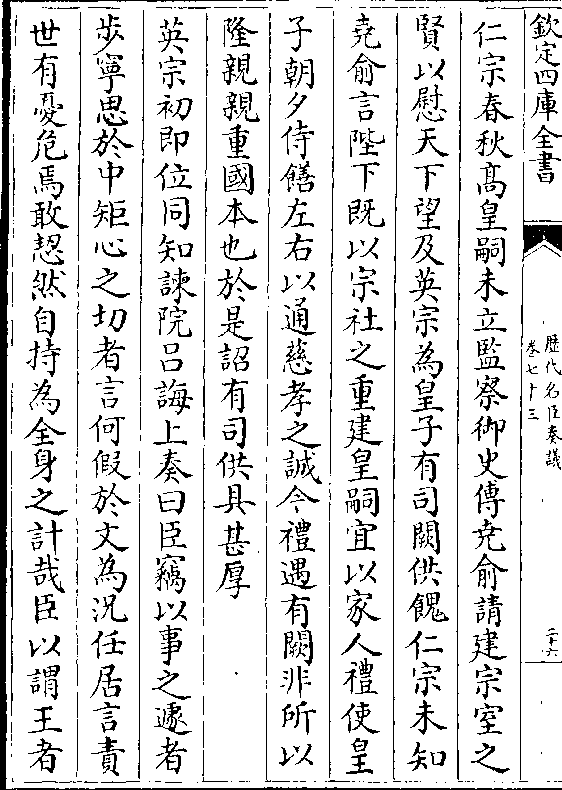 欽定四庫全書
歷代名臣奏議
卷七十三
二十六
仁宗春秋髙皇嗣未立監察御史傅堯俞請建宗室之
賢以慰天下望及英宗為皇子有司闕供餽仁宗未知
堯俞言陛下既以宗社之重建皇嗣宜以家人禮使皇
子朝夕侍饍左右以通慈孝之誠今禮遇有闕非所以
隆親親重國本也於是詔有司供具甚厚
英宗初即位同知諫院吕誨上奏曰臣竊以事之遽者
歩寧思於中矩心之切者言何假於文為況任居言責
世有憂危焉敢恝然自持為全身之計哉臣以謂王者